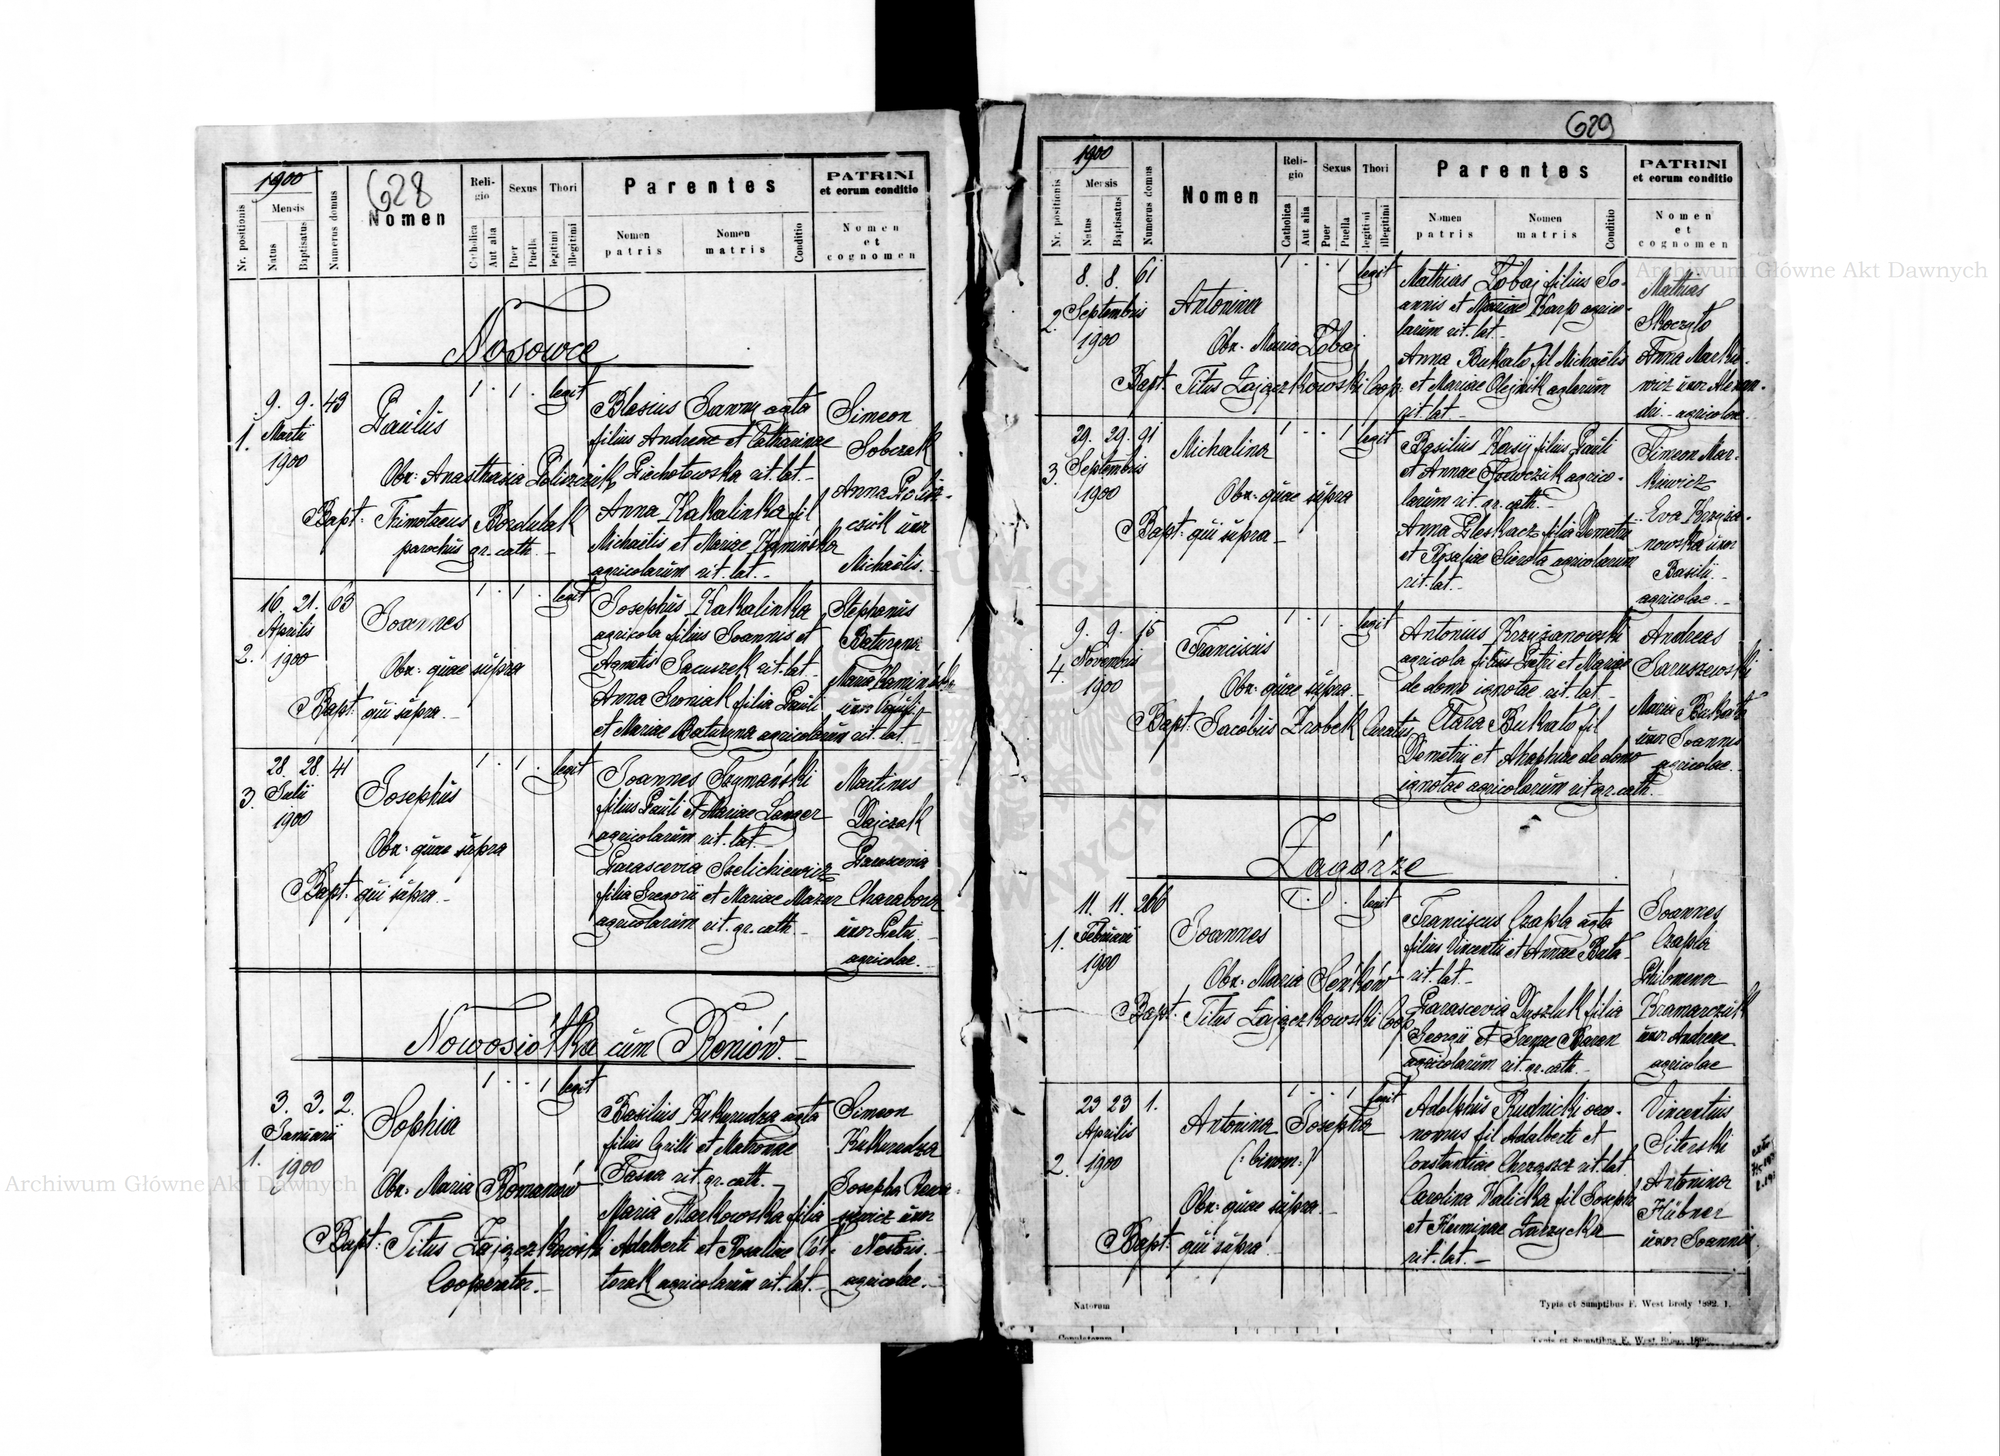 628
1900
Nr. positionis
Mensis
Natus
Baptisatus
Numerus domus
Nomen
Religio
Catholica
Aut alia
Sexus
Puer
Puella
Thori
legitimi
illegitimi
Parentes
Nomen patris
Nomen matris
Conditio
PATRINI
et eorum conditio
Nomen
et
cognomen
Nosowce
1.
9. 9. 43
Martii
1900
Paulus
1 . 1 . legit
Obx: Anasthasia Poliszczuk
Bapt: Thimotaeus Bordulak
parochus gr. cath. -
Blasius Sawny agta
filius Andreae et Catharinae
Piechotowska rit. lat. -
Anna Kakalinka fil
Michaëlis et Mariae Kamińska
agricolarum rit. lat. -
Simeon
Sobczak
Anna Polisz-
czuk uxor
Michaëlis.
2.
16. 21. 63
Aprilis
1900
Joannes
1 . 1 . legit
Obx: quae supra
Bapt: qui supra. -
Josephus Kakalinka
agricola filius Joannis et
Agnetis Jacuszek rit. lat. -
Anna Groniak filia Pauli
et Mariae Baturyna agricolarum rit. lat. -
Stephanus
Baturyna
Maria Kamińska
uxor Pauli
3.
28. 28. 41
Julii
1900
Josephus
1 . 1 . legit
Obx: quae supra
Bapt: qui supra. -
Joannes Szymański
filius Pauli et Mariae Langer
agricolarum rit. lat. -
Parascevia Szelichiewicz
filia Gregorii et Mariae Mazur
agricolarum rit. gr. cath -
Martinus
Dajczak
Parascevia
Charabora
uxor Petri -
agricolae. -
Nowosiółka cum Reniów. -
1.
3. 3. 2.
Januarii
1900
Sophia
1 . . 1 legit
Obx: Maria Romanów
Bapt: Titus Zajączkowski
Cooperator. -
Basilius Kukurudza agta
filius Cyrilli et Matronae
Fasna rit. gr. cath. -
Maria Markowska filia
Adalberti et Rosaliae Pół-
torak agricolarum rit. lat. -
Simeon
Kukurudza
Josepha Rewa-
sewicz uxor
Nestoris. -
agricolae. -
629
1900
Nr. positionis
Mensis
Natus
Baptisatus
Numerus domus
Nomen
Religio
Catholica
Aut alia
Sexus
Puer
Puella
Thori
legitimi
illegitimi
Parentes
Nomen patris
Nomen matris
Conditio
PATRINI
et eorum conditio
Nomen
et
cognomen
2.
8. 8. 61
Septembris
1900
Antonina
1 . . 1 legit
Obx: Maria Łobaj
Bapt: Titus Zajączkowski Coop.
Mathias Łobaj filius Jo-
annis et Mariae Karp agrico-
larum rit. lat. -
Anna Bukało fil Michaëlis
et Mariae Olejnik aglarum
rit. lat -
Mathias
Skoczyło
Anna Marke-
wicz uxor Alexan-
dri - agricolae
3.
29. 29. 91
Septembris
1900
Michalina
1 . . 1 legit
Obx: quae supra
Bapt: qui supra -
Basilius Kasij filius Pauli
et Annae Szewczuk agrico-
larum rit. gr. cath. -
Anna Pleskacz filia Demetrii
et Rosaliae Sierota agricolarum
rit. lat. -
Simeon Mar-
kiewicz
Eva Krzyża-
nowska uxor
Basilii. -
agricolae. -
4.
9. 9. 15
Novembris
1900
Franciscus
1 . 1 . legit
Obx: quae supra. -
Bapt: Jacobus Zrobek Curatus
Antonius Krzyżanowski
agricola filius Petri et Mariae
de domo ignotae rit. lat. -
Clara Bukało fil
Demetrii et Ahaphiae de domo
ignotae agricolarum rit gr. cath. -
Andreas
Jaruszewski
Maria Bukało
uxor Joannis
agricolae. -
Zagórze
1.
11. 11. 266
Februarii
1900
Joannes
1 . 1 . legit
Obx: Maria Seńków
Bapt: Titus Zajączkowski Coop
Franciscus Czapla agta
filius Vincentii et Annae Buła
rit. lat. -
Parascevia Dyszluk filia
Georgii et Irenae Baran
agricolarum rit. gr. cath. -
Joannes
Czapla
Philomena
Kramarczuk
uxor Andreae
agricolae
2.
23 23 1.
Aprilis
1900
Antonina Josepha
(: binom :)
1 . . 1 legit
Obx: quae supra. -
Bapt: qui supra. -
Adolphus Rudnicki oeco-
nomus fil Adalberti et
Constantiae Chrząszcz rit. lat.
Carolina Walicka fil Josephi
et Herminae Zarzycka
rit. lat. -
Vincentius
Siterski
Antonina
Hübner
uxor Joannis.
Natorum
Typis et Sumptibus F. West Brody 1892. 1.
Copulatorum
Typis et Sumptibus F. West Brody
Archiwum Główne Akt Dawnych
Archiwum Główne Akt Dawnych